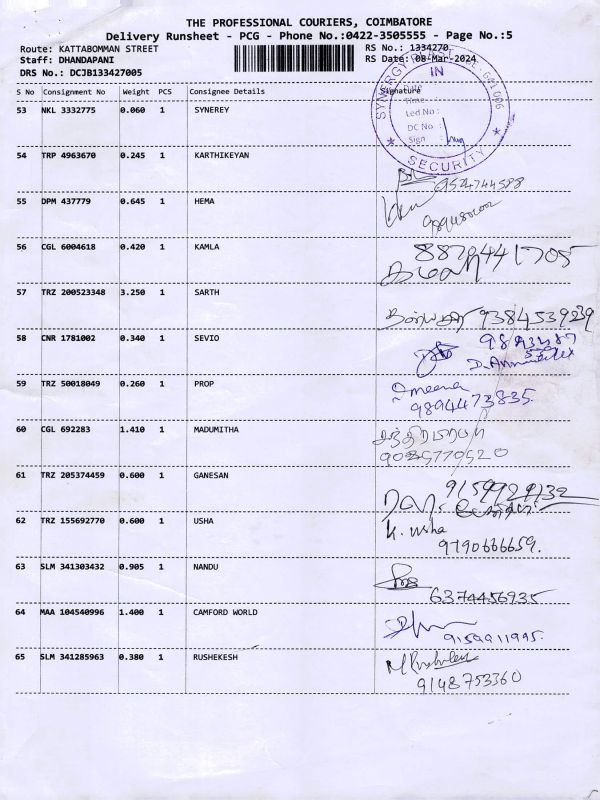 THE PROFESSIONAL COURIERS, COIMBATORE
Delivery Runsheet - PCG - Phone No.:0422-3505555 - Page No.:5
Route: KATTABOMMAN STREET RS No.: 1334270
Staff: DHANDAPANI RS Date: 08-Mar-2024
DRS No.: DCJB133427005
S No Consignment No Weight PCS Consignee Details Signature
IN
Led No :
DC No :
Sign :
SECURITY
53 NKL 3332775 0.060 1 SYNEREY
54 TRP 4963670 0.245 1 KARTHIKEYAN
9524744588
55 DPM 437779 0.645 1 HEMA
56 CGL 6004618 0.420 1 KAMLA
8870441705
கமலா
57 TRZ 200523348 3.250 1 SARTH
9384539239
58 CNR 1781002 0.340 1 SEVIO
59 TRZ 50018049 0.260 1 PROP
meena
9894473835.
60 CGL 692283 1.410 1 MADUMITHA
61 TRZ 205374459 0.600 1 GANESAN
62 TRZ 155692770 0.600 1 USHA
K. usha
9790666659.
63 SLM 341303432 0.905 1 NANDU
6374456935
64 MAA 104540996 1.400 1 CAMFORD WORLD
9159911995.
65 SLM 341285963 0.380 1 RUSHEKESH
9148753360